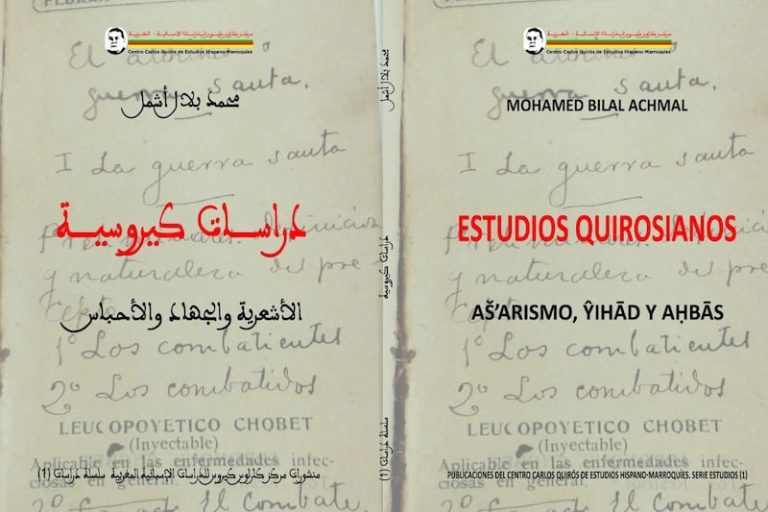 مركز كارلوس كيروس للدراسات الإسبانية - المغربية
Centro Carlos Quirós de Estudios Hispano-Marroquíes
guerra santa.
محمد بلال أشمل
I La guerra santa
دراسات كيروسية
y naturaleza del pre
الأشعرية والجهاد والأحباس
1º Los combatientes
2º Los combatidos
LEUCOPOYETICO CHOBET
(Inyectable)
Aplicable en las enfermedades infec-
ciosas en general.
منشورات مركز كارلوس كيروس للدراسات الإسبانية المغربية سلسلة دراسات (1)
محمد بلال أشمل
دراسات كيروسية
سلسلة دراسات (1)
مركز كارلوس كيروس للدراسات الإسبانية - المغربية
Centro Carlos Quirós de Estudios Hispano-Marroquíes
guerra santa.
MOHAMED BILAL ACHMAL
I La guerra santa
ESTUDIOS QUIROSIANOS
y naturaleza del pre
AŠ’ARISMO, ŶIHĀD Y AḤBĀS
1º Los combatientes
2º Los combatidos
LEUCOPOYETICO CHOBET
(Inyectable)
Aplicable en las enfermedades infec-
PUBLICACIONES DEL CENTRO CARLOS QUIRÓS DE ESTUDIOS HISPANO-MARROQUÍES. SERIE ESTUDIOS (1)
ciosas en general.